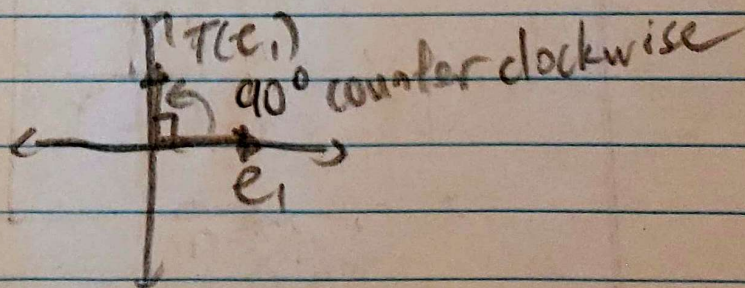 T(e₁)
90° counter clockwise
e₁